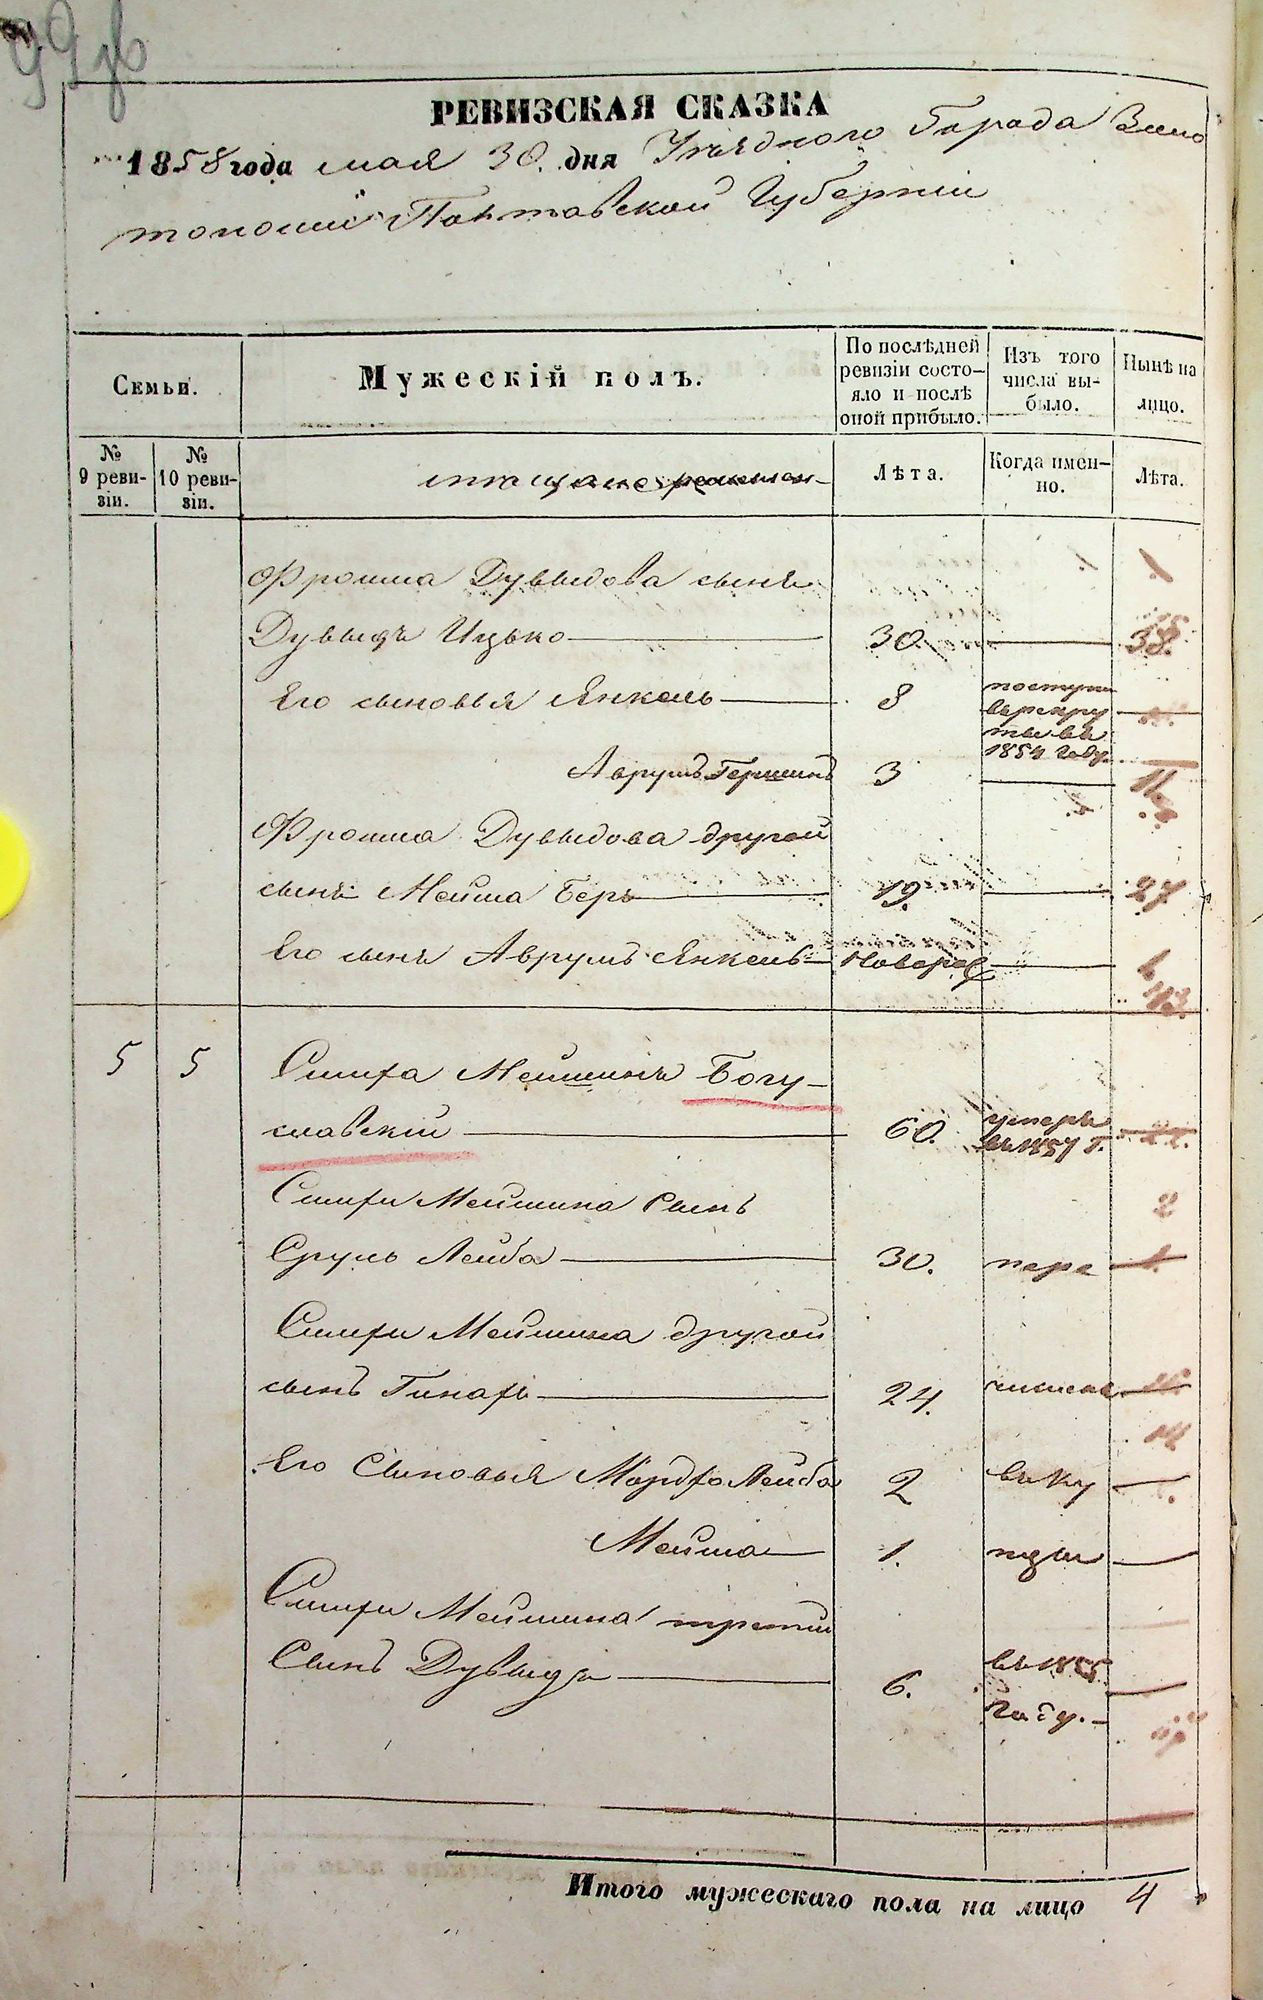 РЕВИЗСКАЯ СКАЗКА
1858 года мая 30. дня Уѣзднаго Города Золо
тоноши Полтавской Губерніи
Семьи.
Мужескій полъ.
По послѣдней ревизіи состо-яло и послѣ оной прибыло.
Изъ того числа вы-было.
Нынѣ на лицо.
№ 9 реви-зіи.
№ 10 реви-зіи.
мѣщане
Лѣта.
Когда имен-но.
Лѣта.
Фроима Дувыдова сынъ
Дувыдъ Ицько 30. 38.
Его сыновья Янкель 8 поступи въ рекру ты въ 1854 году.
Аврумъ Гершинъ 3 11.
Фроима Дувыдова другой
сынъ Мейша Беръ 19. 27
Его сынъ Аврумъ Янкель Новорож
5 5 Симха Мейшинъ Богу-
славскій 60. умеръ въ 1857 г.
Симхи Мейшина Сынъ
Сруль Лейба 30. пере
Симхи Мейшина другой
сынъ Гинахъ 24. числен
Его Сыновья Мордхо Лейба 2 въ ку
Мейша 1. пцы
Симхи Мейшина третій
Сынъ Дувыдъ 6. въ 1855
году.
Итого мужескаго пола на лицо 4